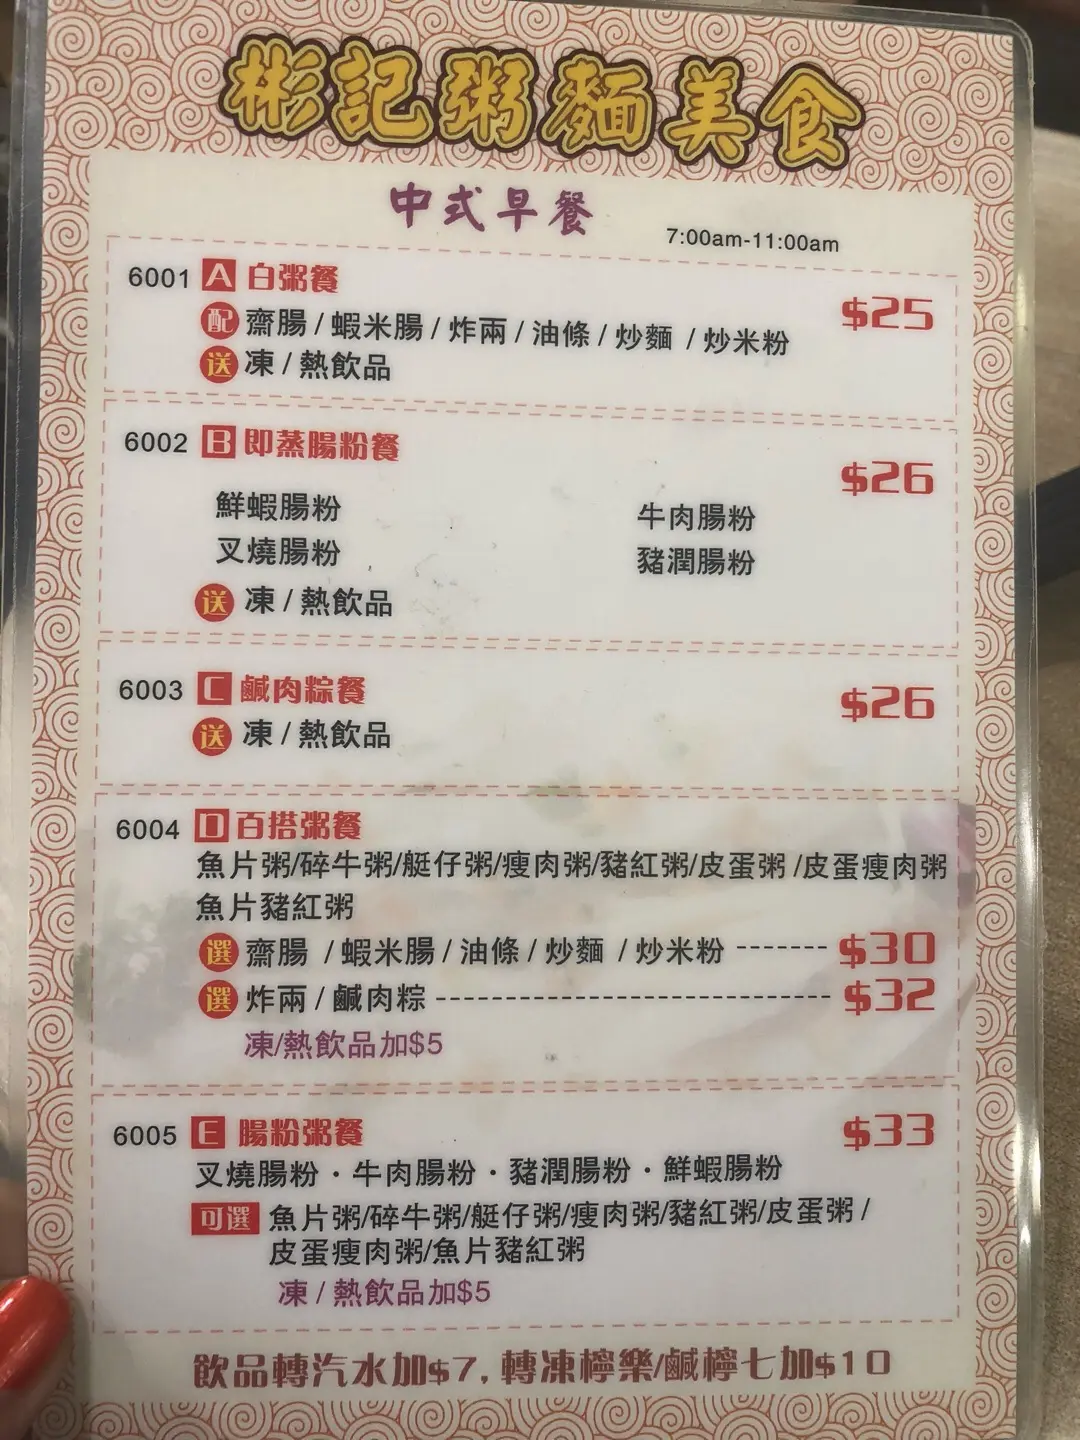 彬記粥麵美食
中式早餐 7:00am-11:00am
6001 A 白粥餐 $25
配 齋腸 / 蝦米腸 / 炸兩 / 油條 / 炒麵 / 炒米粉
送 凍 / 熱飲品
6002 B 即蒸腸粉餐 $26
鮮蝦腸粉 牛肉腸粉
叉燒腸粉 豬潤腸粉
送 凍 / 熱飲品
6003 C 鹹肉粽餐 $26
送 凍 / 熱飲品
6004 D 百搭粥餐
魚片粥/碎牛粥/艇仔粥/瘦肉粥/豬紅粥/皮蛋粥 /皮蛋瘦肉粥
魚片豬紅粥
選 齋腸 / 蝦米腸 / 油條 / 炒麵 / 炒米粉 ------- $30
選 炸兩 / 鹹肉粽 ----------------------------- $32
凍/熱飲品加$5
6005 E 腸粉粥餐 $33
叉燒腸粉 · 牛肉腸粉 · 豬潤腸粉 · 鮮蝦腸粉
可選 魚片粥/碎牛粥/艇仔粥/瘦肉粥/豬紅粥/皮蛋粥 /
皮蛋瘦肉粥/魚片豬紅粥
凍 / 熱飲品加$5
飲品轉汽水加$7, 轉凍檸樂/鹹檸七加$10